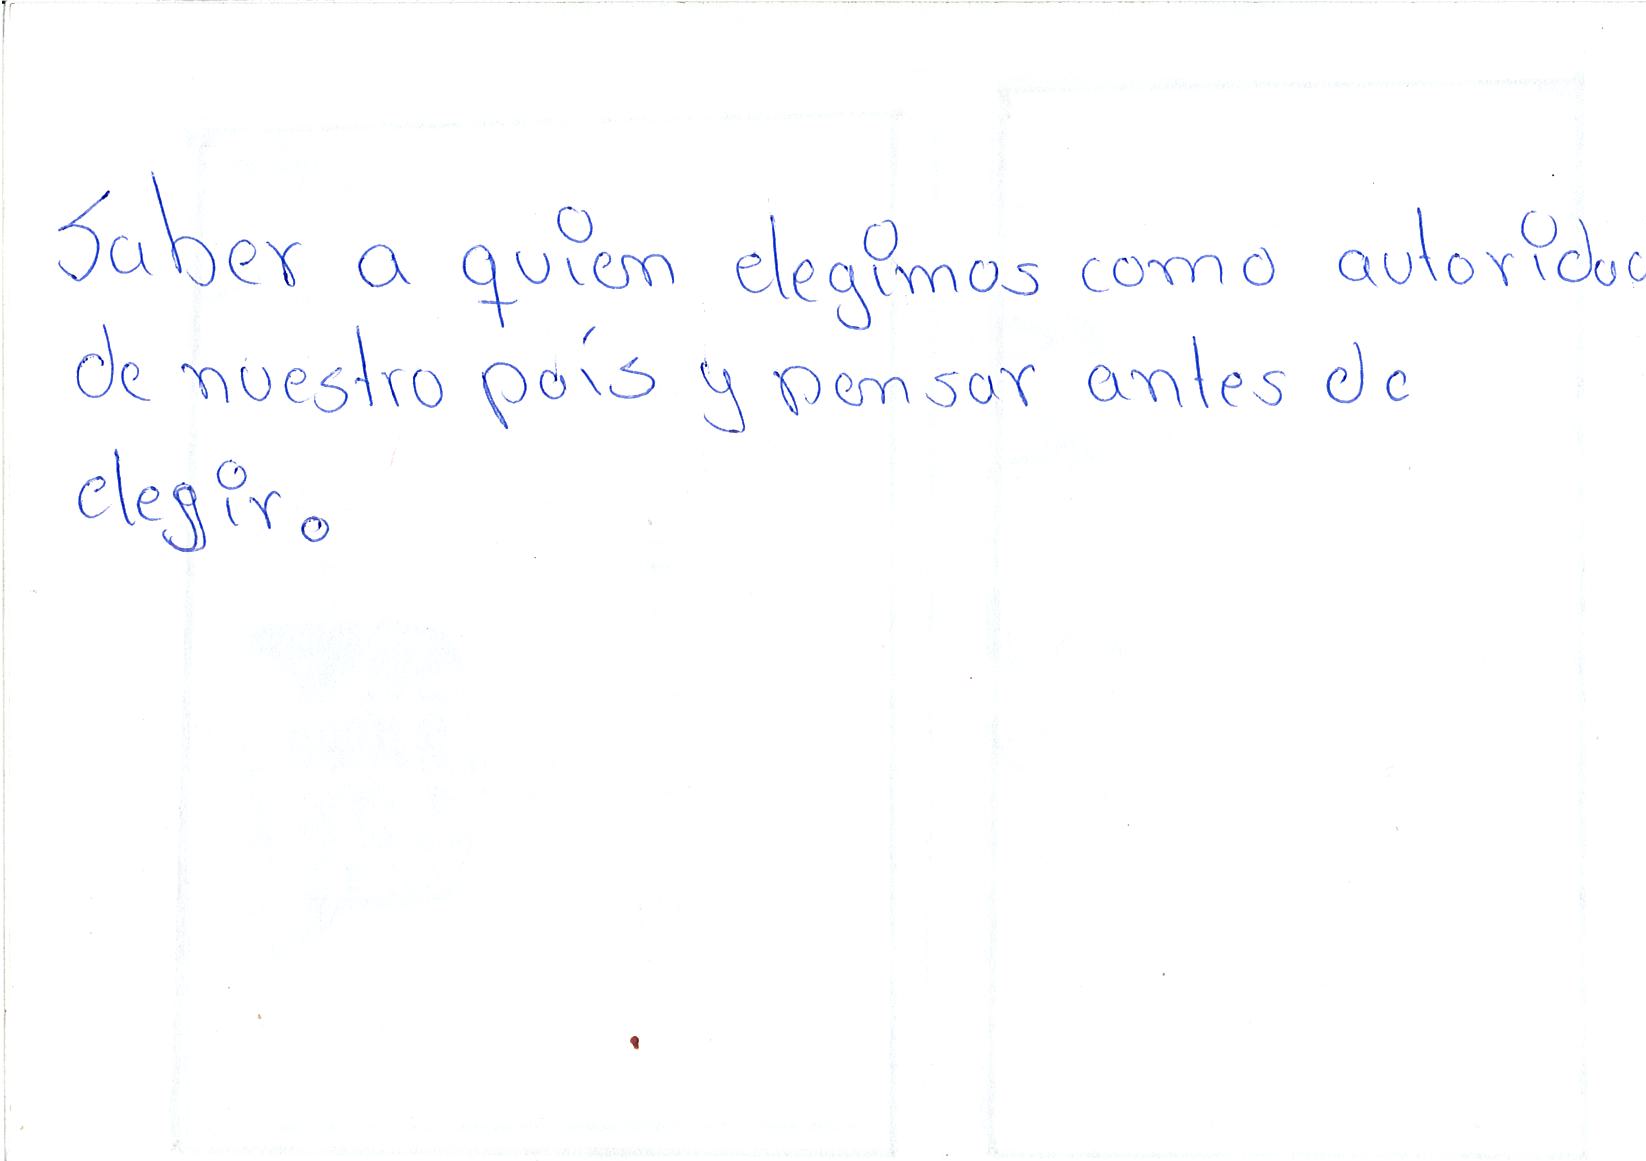 Saber a quien elegimos como autoridad
de nuestro país y pensar antes de
elegir.